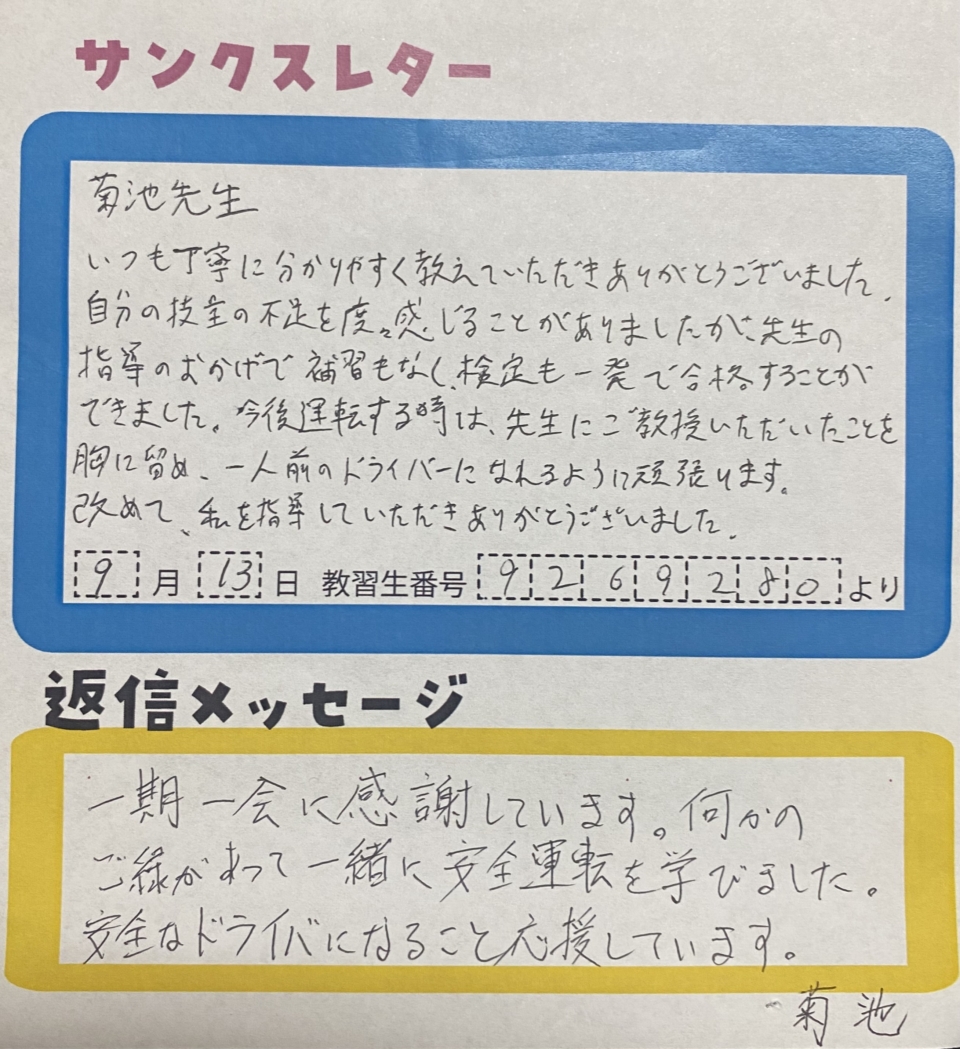 サンクスレター
菊池先生
いつも丁寧に分かりやすく教えていただきありがとうございました。
自分の技量の不足を度々感じることがありましたが、先生の
指導のおかげで補習もなく、検定も一発で合格することが
できました。今後運転する時は、先生にご教授いただいたことを
胸に留め、一人前のドライバーになれるように頑張ります。
改めて、私を指導していただきありがとうございました。
9月13日 教習生番号 9269280より
返信メッセージ
一期一会に感謝しています。何かの
ご縁があって一緒に安全運転を学びました。
安全なドライバになること応援しています。
菊池